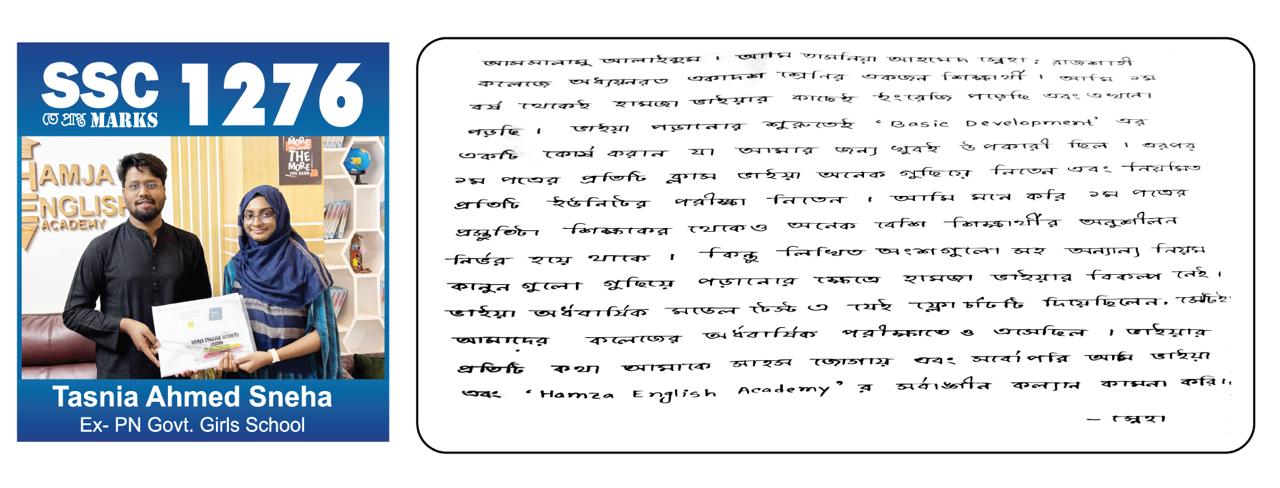 SSC 1276
তে প্রাপ্ত MARKS
HAMJA
ENGLISH
ACADEMY
MORE
THE
MORE
YOU EARN
HAMJA ENGLISH ACADEMY
Tasnia Ahmed Sneha
Ex- PN Govt. Girls School
আসসালামু আলাইকুম । আমি তাসনিয়া আহমেদ স্নেহা। রাজশাহী
কলেজে অধ্যয়নরত একাদশ শ্রেনির একজন শিক্ষার্থী । আমি ৯ম
বর্ষ থেকেই হামজা ভাইয়ার কাছেই ইংরেজি পড়েছি এবং এখনো
পড়ছি । ভাইয়া পড়ানোর শুরুতেই ‘Basic Development’ এর
একটি কোর্স করান যা আমার জন্য খুবই উপকারী ছিল । এরপর
১ম পত্রের প্রতিটি ক্লাস ভাইয়া অনেক গুছিয়ে নিতেন এবং নিয়মিত
প্রতিটি ইউনিটের পরীক্ষা নিতেন । আমি মনে করি ১ম পত্রের
প্রস্তুতিটা শিক্ষকের থেকেও অনেক বেশি শিক্ষার্থীর অনুশীলন
নির্ভর হয়ে থাকে । কিন্তু লিখিত অংশগুলো সহ অন্যান্য নিয়ম
কানুন গুলো গুছিয়ে পড়ানোর ক্ষেত্রে হামজা ভাইয়ার বিকল্প নেই ।
ভাইয়া অর্ধবার্ষিক মডেল টেস্ট এ যেই ফ্লো চার্টটি দিয়েছিলেন, সেটিই
আমাদের কলেজের অর্ধবার্ষিক পরীক্ষাতেও এসেছিল । ভাইয়ার
প্রতিটি কথা আমাকে সাহস জোগায় এবং সর্বোপরি আমি ভাইয়া
এবং ‘Hamza English Academy’ র সর্বাঙ্গীন কল্যান কামনা করি।
– স্নেহা